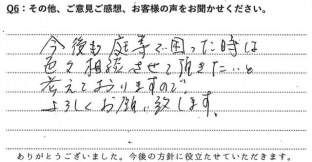 Q6：その他、ご意見ご感想、お客様の声をお聞かせください。
今後も庭等で困った時は
色々相談させて頂きたいと
考えておりますので、
よろしくお願い致します。
ありがとうございました。今後の方針に役立たせていただきます。